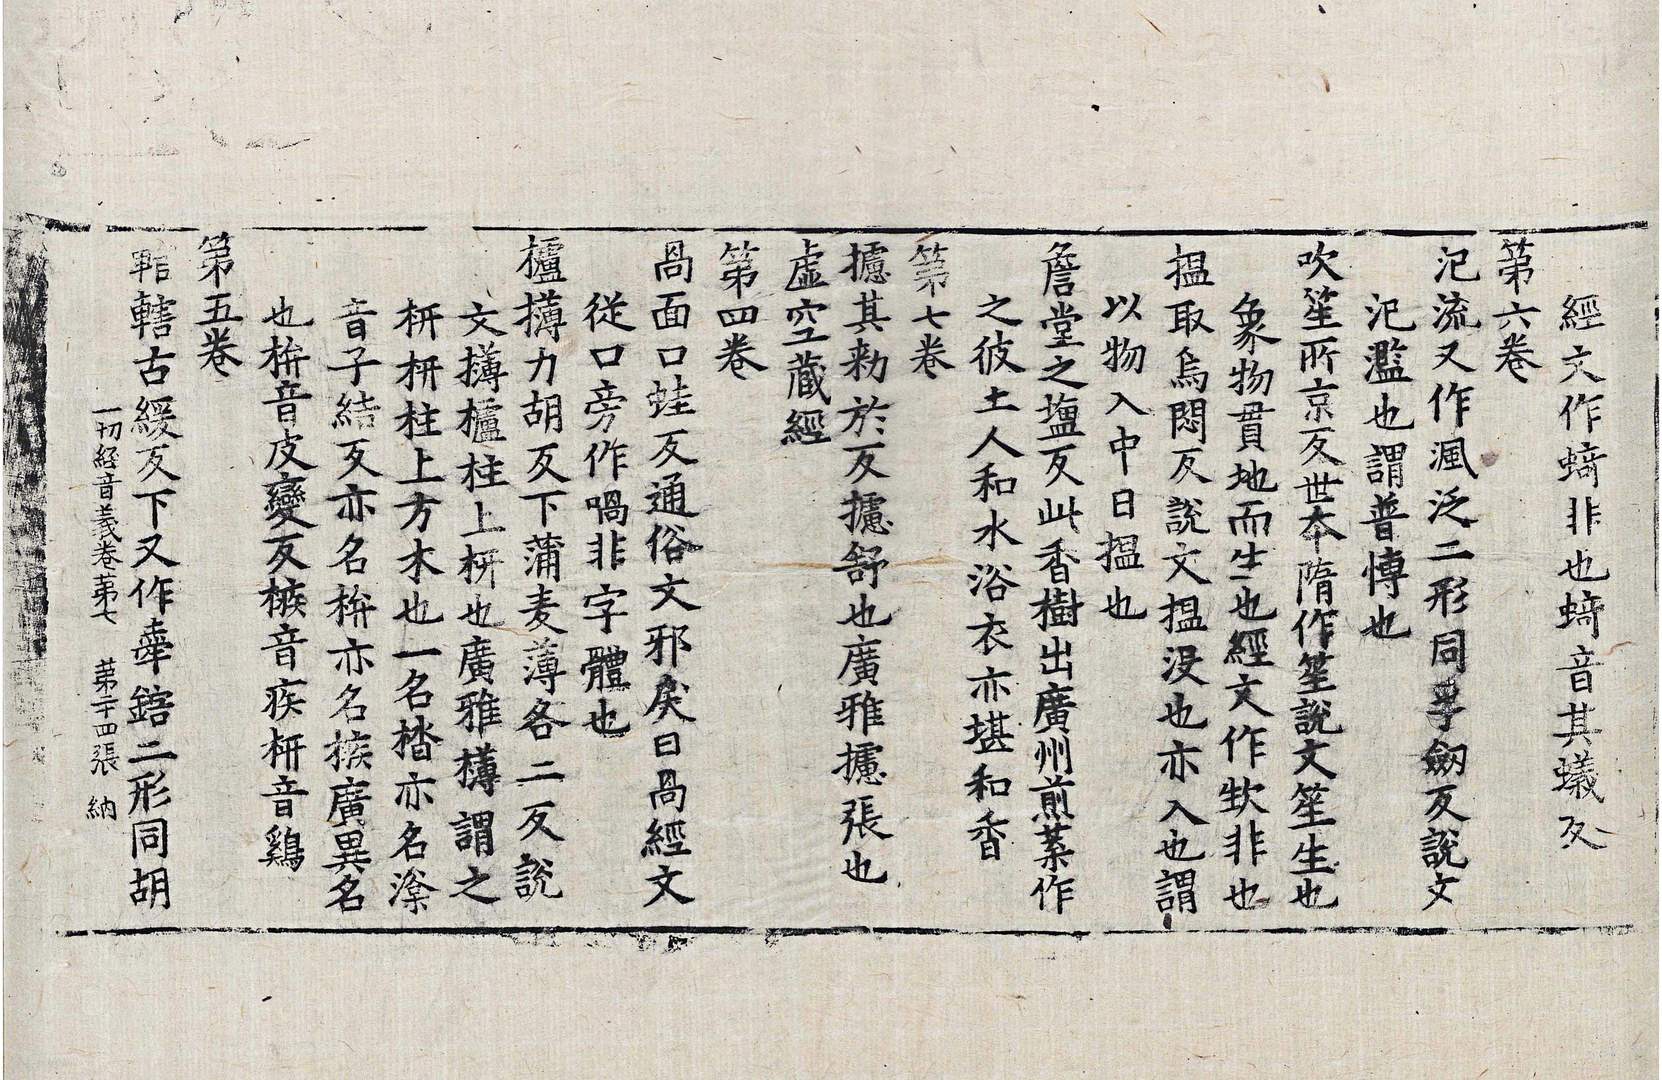 經文作蜟非也蜟音其蟻反
第六卷
氾流又作渢泛二形同孚劒反說文
氾濫也謂普愽也
吹笙所京反世本隋作笙說文笙生也
象物貫地而生也經文作䇦非也
搵取烏悶反說文搵没也亦入也謂
以物入中曰搵也
詹堂之壇反此香樹出廣州煎葉作
之彼土人和水浴衣亦堪和香
第七卷
攄其勑於反攄舒也廣雅攄張也
虛空藏經
第四卷
咼面口蛙反通俗文邪戾曰咼經文
從口旁作喎非字體也
櫨欂力胡反下蒲麦薄各二反說
文欂櫨柱上枅也廣雅欂謂之
枅枅柱上方木也一名楷亦名楶
音子結反亦名栟亦名槉廣異名
也栟音皮變反槉音疾枅音鷄
第五卷
鞨轄古緩反下又作舝鎋二形同胡
一切経音義卷苐七 苐二十四張 納